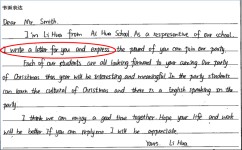 书面表达
Dear Mr. Smith.
I'm Li Hua from As Hua School. As a respresentive of our school.
I write a letter for you and express the pound of you can join our party.
Each of our students are all looking forward to your coming. Our party
of Christmas this year will be interesting and meaningful. In the party students
can learn the cultural of Christmas and there is an English speaking in the
party.
I think we can enjoy a good time together. Hope your life and work
will be better. If you can reply me I will be appreciate.
Yours. Li Hua